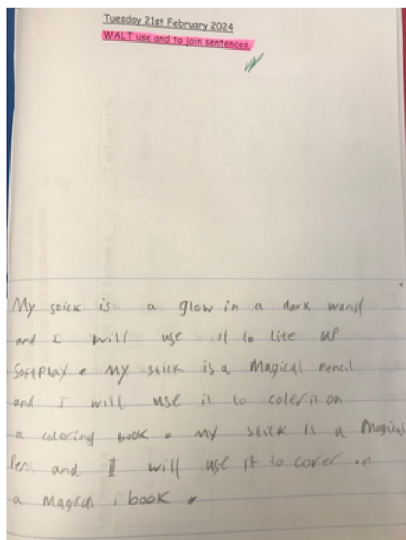 Tuesday 21st February 2024
WALT use and to join sentences
My stick is a glow in a dark wand
and I will use it to lite up
Softplay. My stick is a Magical Pencil
and I will use it to coler it on
a coloring book. My stick is a Magical
Pens and I will use it to cover on
a Magical book.